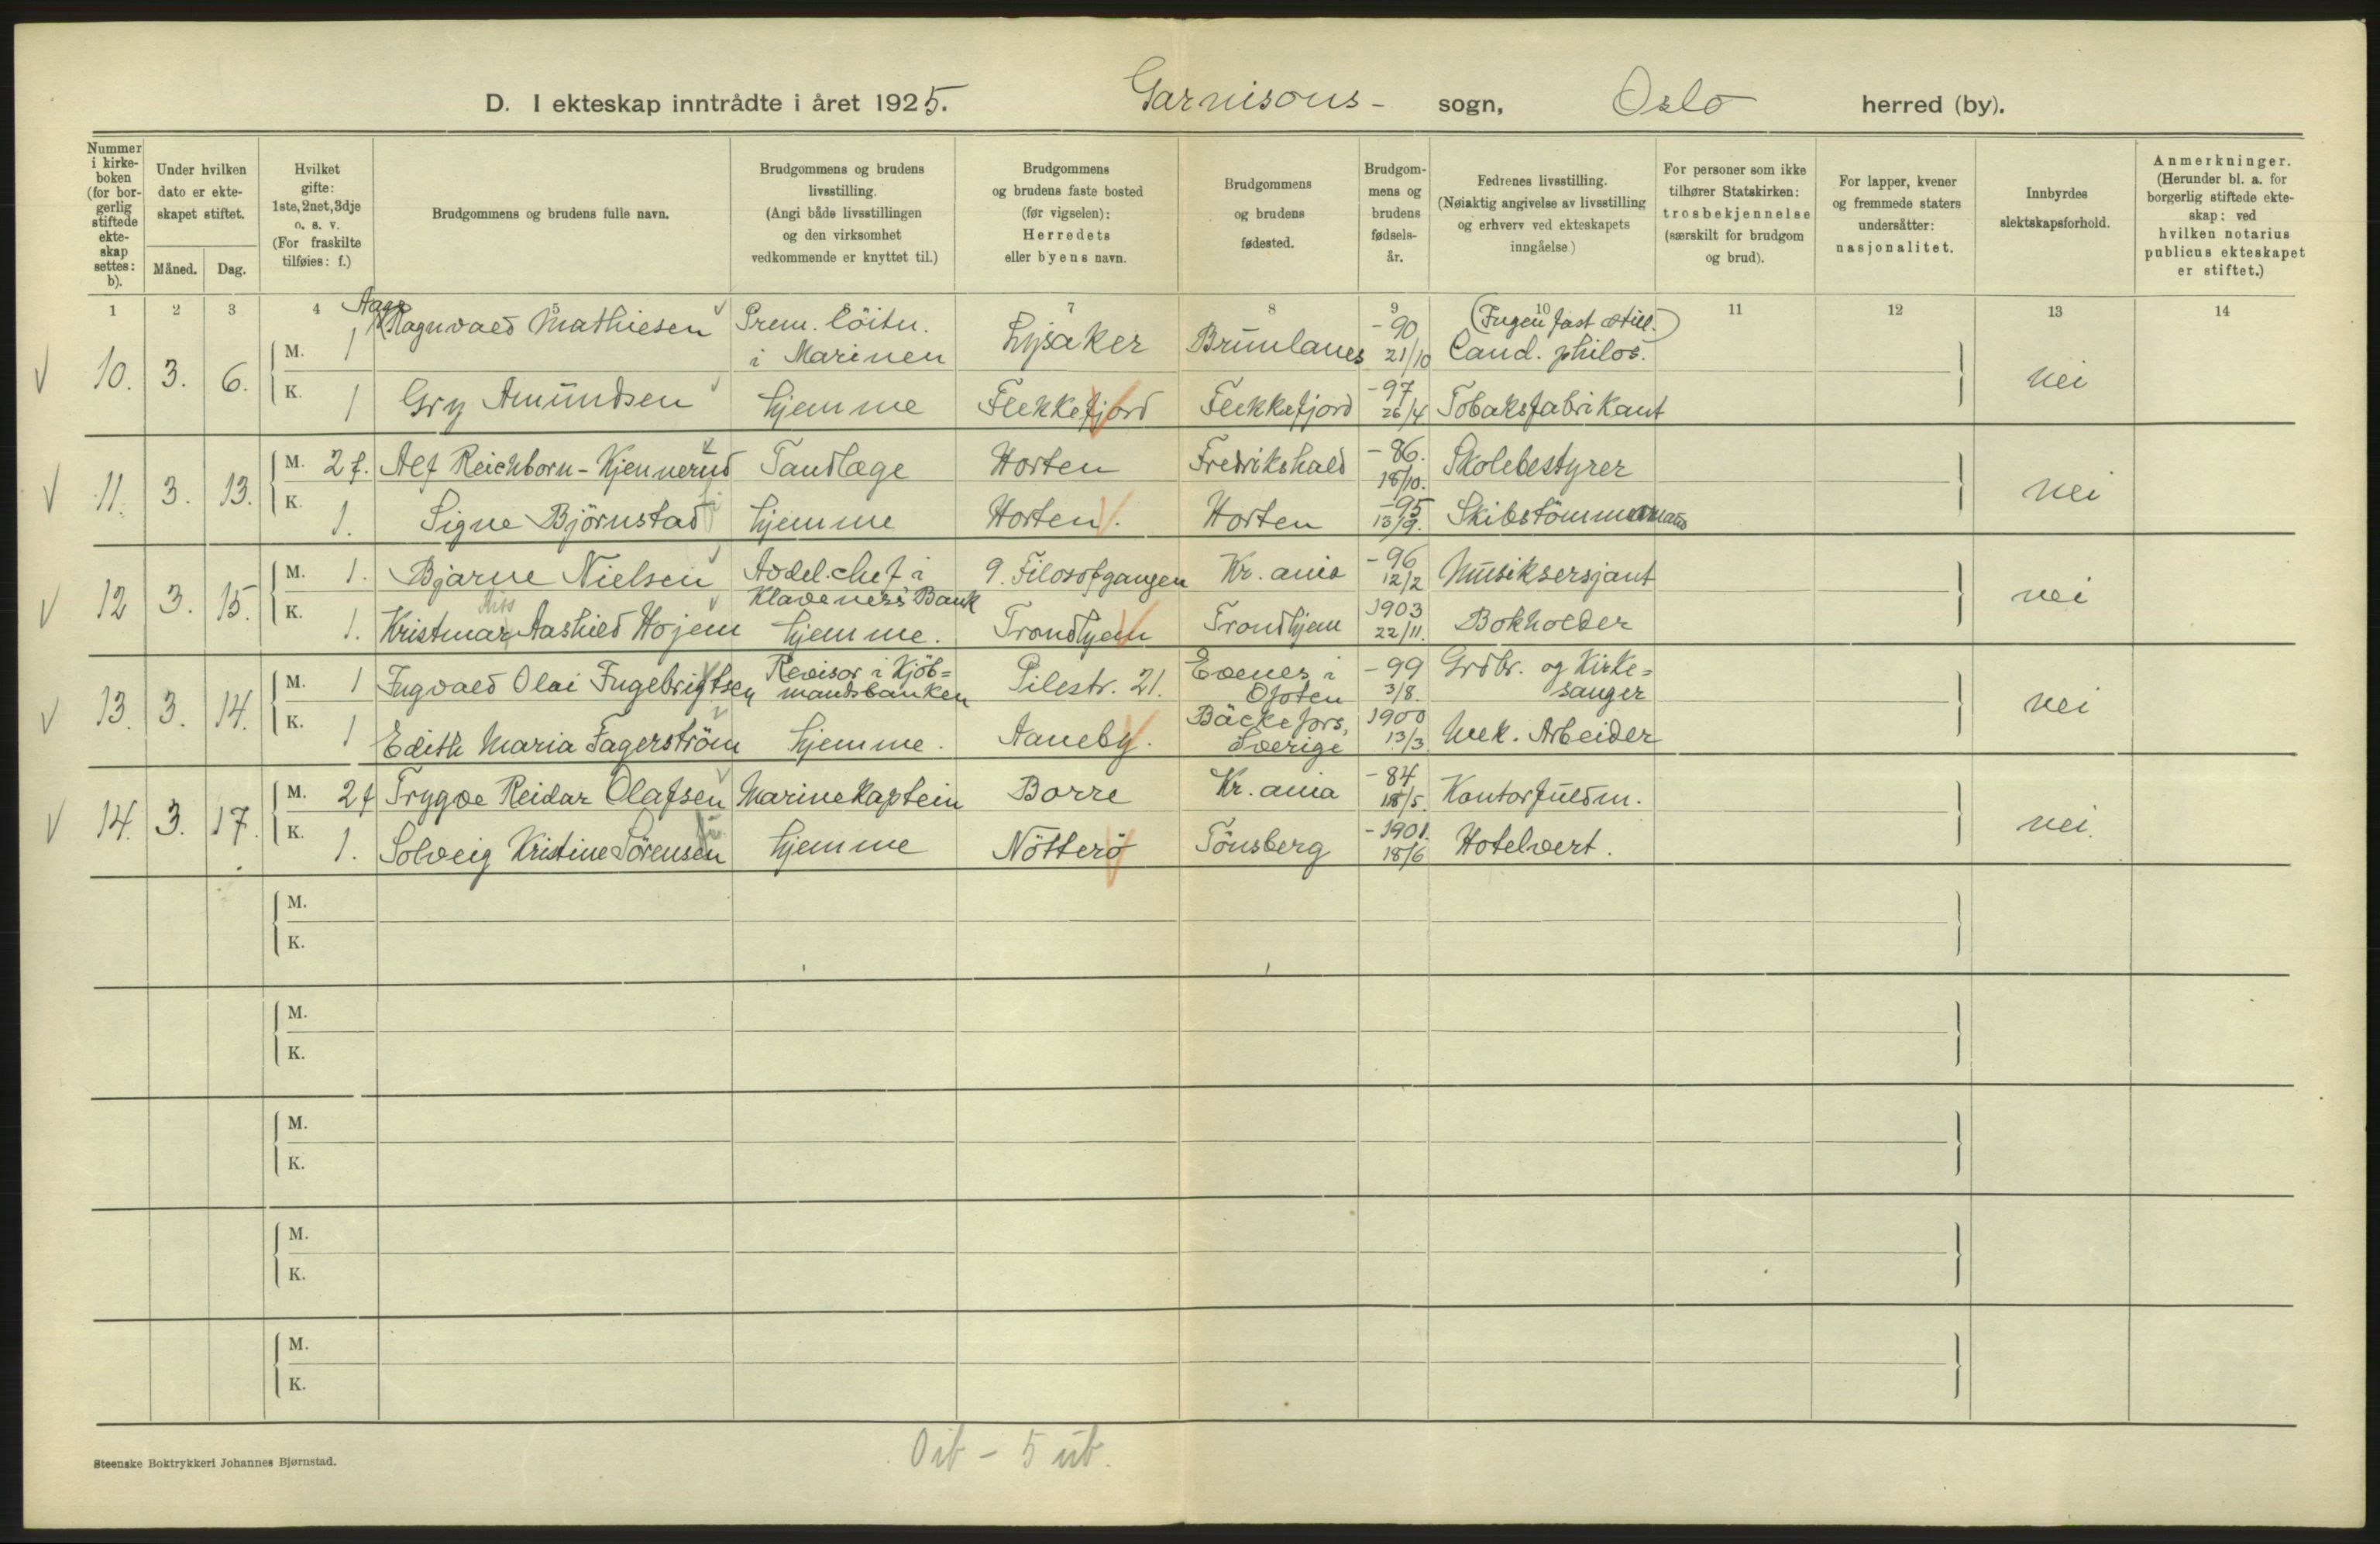 D. I ekteskap inntrådte i året 1925. Garnisons- sogn, Oslo herred (by).
Nummer i kirke-boken (for bor-gerlig stiftede ekte-skap settes: b).
Under hvilken dato er ekte-skapet stiftet.
Måned. Dag.
Hvilket gifte: 1ste, 2net, 3dje o. s. v. (For fraskilte tilføies: f.)
Brudgommens og brudens fulle navn.
Brudgommens og brudens livsstilling. (Angi både livsstillingen og den virksomhet vedkommende er knyttet til.)
Brudgommens og brudens faste bosted (før vigselen): Herredets eller byens navn.
Brudgommens og brudens fødested.
Brudgom-mens og brudens fødsels-år.
Fedrenes livsstilling. (Nøiaktig angivelse av livsstilling og erhverv ved ekteskapets inngåelse)
For personer som ikke tilhører Statskirken: trosbekjennelse (særskilt for brudgom og brud).
For lapper, kvener og fremmede staters undersåtter: nasjonalitet.
Innbyrdes slektskapsforhold.
Anmerkninger. (Herunder bl. a. for borgerlig stiftede ekte-skap: ved hvilken notarius publicus ekteskapet er stiftet.)
1 2 3 4 5 7 8 9 10 11 12 13 14
10. 3. 6. M. 1 Aage Ragnvald Mathiesen Prem. löitn. i Marinen Lysaker Brunlanes -90 21/10 (Ingen fast still.) Cand. philos. nei
K. 1 Gry Amundsen hjemme Flekkefjord Flekkefjord -97 26/4 Tobaksfabrikant
11. 3. 13. M. 2 f. Alf Reichborn-Kjennerud Tandlæge Horten Fredrikshald -86. 18/10. Skolebestyrer nei
K. 1. Signe Björnstad hjemme Horten. Horten -95 13/9. Skibstömmermand
12 3. 15. M. 1. Bjarne Nielsen Avdel.chef i Klaveness Bank 9. Filosofgangen Kr.ania -96 12/2 Musiksersjant nei
K. 1. Kristmar Aashild Hojem hjemme. Trondhjem Trondhjem 1903 22/11. Bokholder
13. 3. 14. M. 1 Ingvald Olai Ingebrigtsen Revisor i Kjöb=mandsbanken Pilestr. 21. Evenes i Ofoten -99 3/8. Grdbr. og Kirke=sanger nei
K. 1 Edith Maria Fagerström hjemme. Aaneby. Bäckefors, Sverige 1900 13/3 Mek. Arbeider
14. 3. 17. M. 2 f Trygve Reidar Olafsen Marinekaptein Borre Kr.ania -84 18/5. Kontorfuldm. nei.
K. 1. Solveig Kristine Sörensen hjemme Nötterö Tönsberg -1901. 18/6 Hotelvert.
M.
K.
M.
K.
M.
K.
M.
K.
M.
K.
Steenske Boktrykkeri Johannes Bjørnstad.
0 ib - 5 ub.